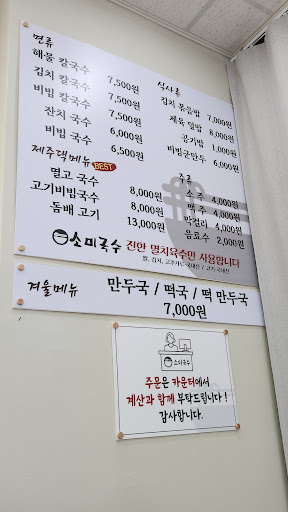 면류
해물 칼국수 7,500원
김치 칼국수 7,500원
비빔 칼국수 7,500원
잔치 국수 6,000원
비빔 국수 6,500원
제주댁메뉴 BEST
멸고 국수 8,000원
고기비빔국수 8,000원
돔배 고기 13,000원
식사류
김치 볶음밥 7,000원
제육 덮밥 8,000원
공기밥 1,000원
비빔군만두 6,000원
주류
소 주 4,000원
맥 주 4,000원
막걸리 4,000원
음료수 2,000원
소미국수 진한 멸치육수만 사용합니다
쌀, 김치, 고추가루-국내산 / 고기-국내산
겨울메뉴
만두국 / 떡국 / 떡 만두국
7,000원
소미국수
주문은 카운터에서
계산과 함께 부탁드립니다 !
감사합니다.